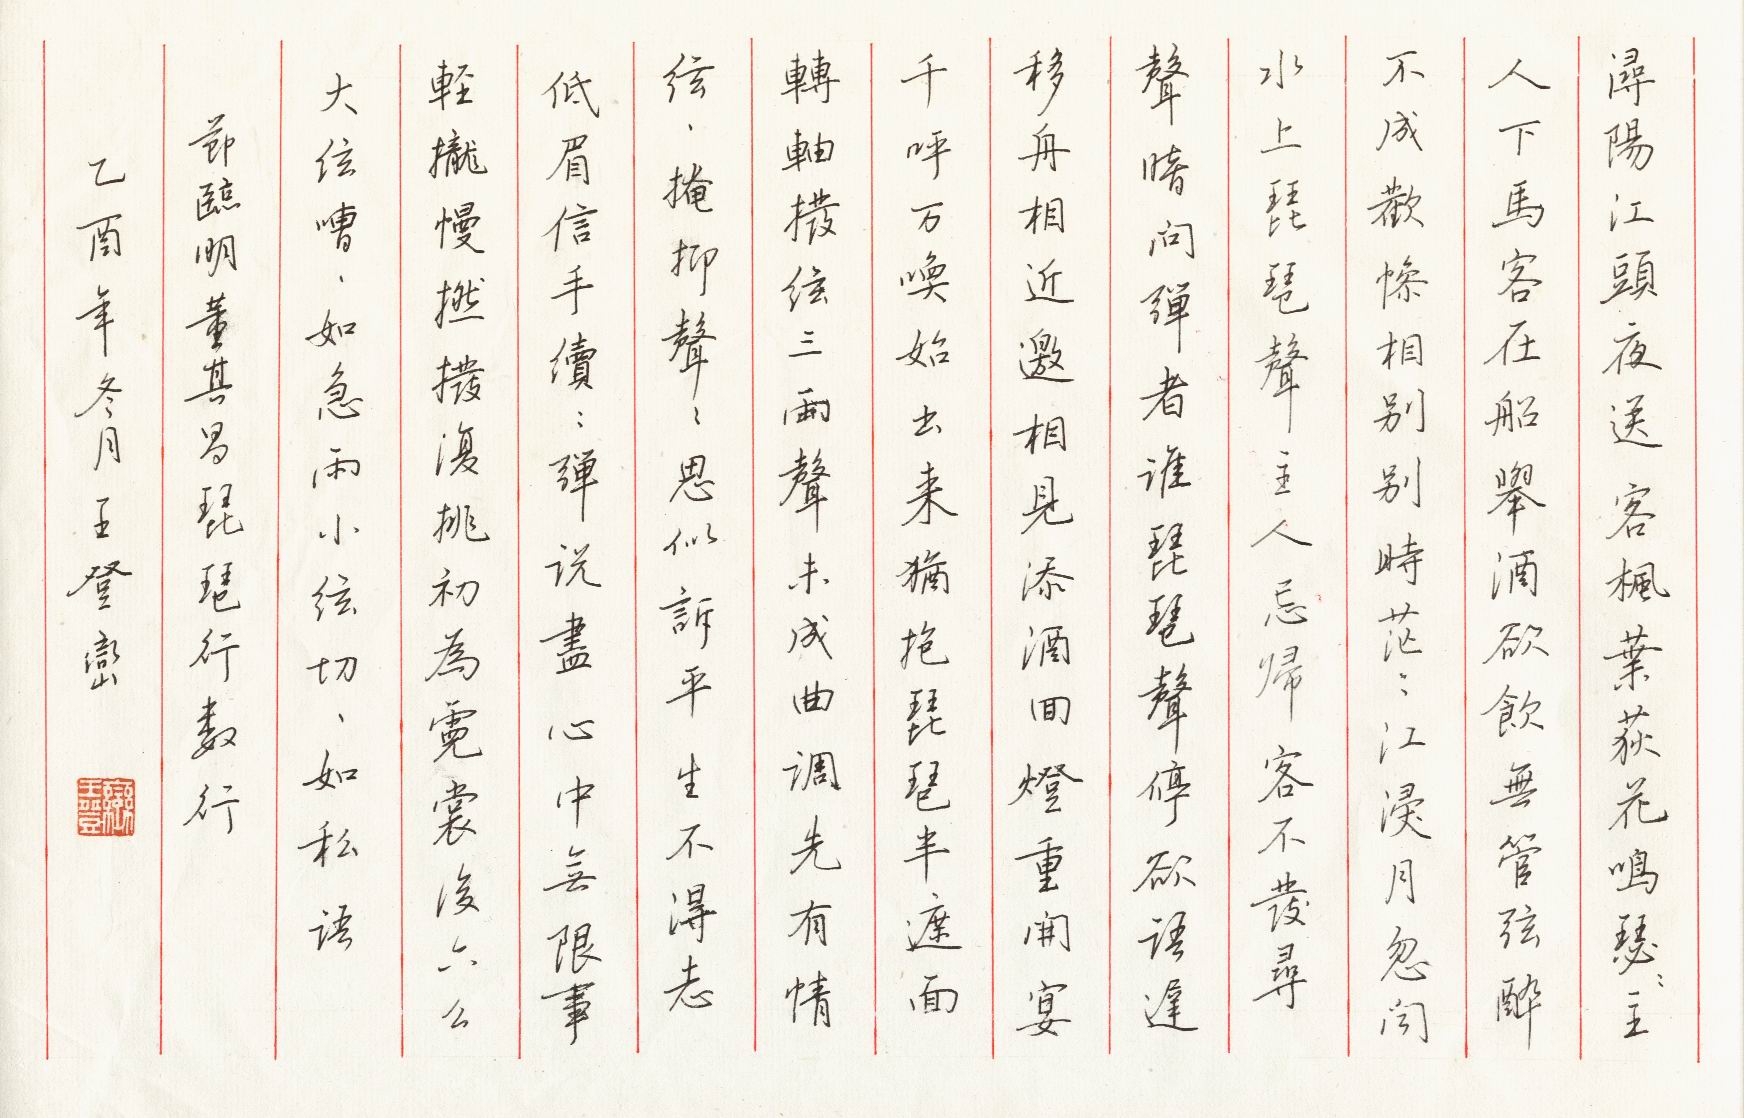 潯陽江頭夜送客楓葉荻花鳴瑟〻主
人下馬客在船舉酒欲飲無管弦醉
不成歡慘相別別時茫〻江浸月忽闻
水上琵琶聲主人忘歸客不發尋
聲暗问彈者谁琵琶聲停欲语遲
移舟相近邀相見添酒回燈重開宴
千呼万喚始出来猶抱琵琶半遮面
轉軸撥弦三兩聲未成曲调先有情
弦〻掩抑聲〻思似訴平生不得志
低眉信手續〻彈说盡心中無限事
輕攏慢撚撥復挑初為霓裳後六么
大弦嘈〻如急雨小弦切〻如私语
節臨明董其昌琵琶行数行
乙酉年冬月王登巒
王登巒